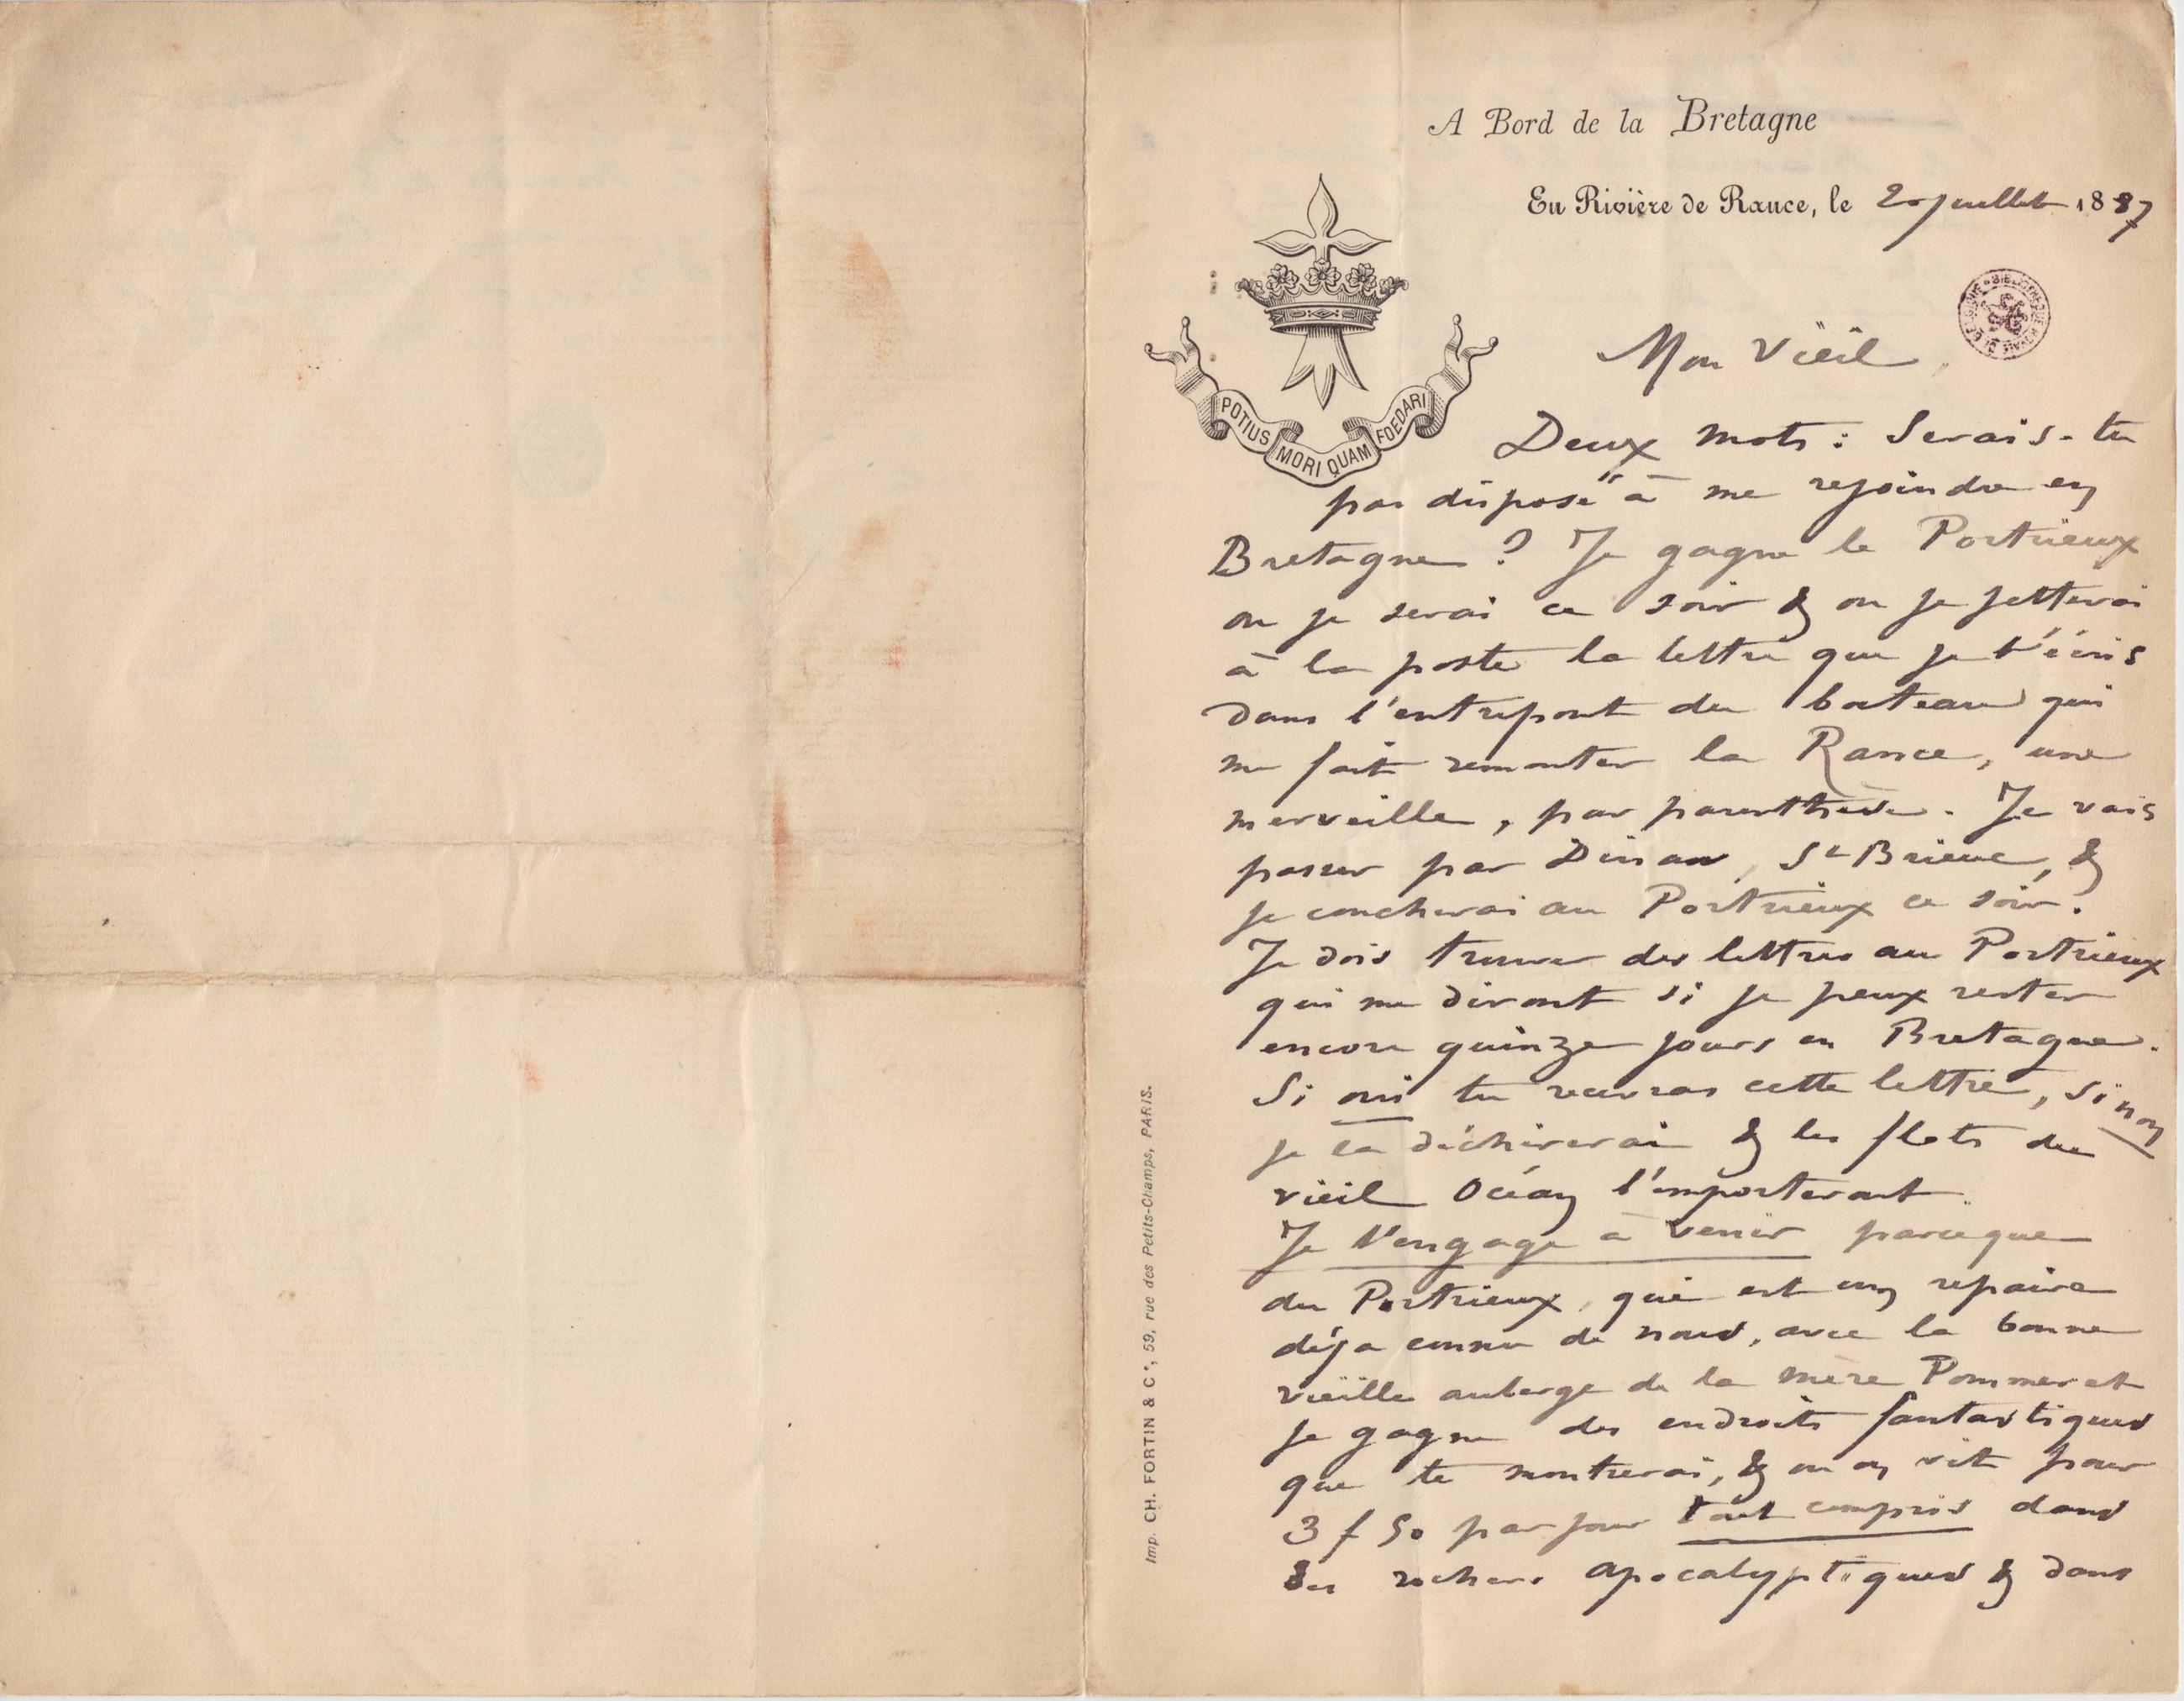 A Bord de la Bretagne
En Rivière de Rance, le 20 juillet 1887
POTIUS MORI QUAM FOEDARI
Mon Vieil
Deux mots : Serais-tu
pas disposé à me rejoindre en
Bretagne ? Je gagne le Portrieux
ou je serai ce soir & ou je jetterai
à la poste la lettre que je t'écris
dans l'entrepont du bateau qui
me fait remonter la Rance, une
merveille, par parenthèse. Je vais
passer par Dinan, St Brieuc, &
je coucherai au Portrieux ce soir.
Je dois trouver des lettres au Portrieux
qui me diront si je peux rester
encore quinze jours en Bretagne.
Si oui tu recevras cette lettre, si non
je la déchirerai & les flots du
vieil Océan l'emporteront.
Je t'engage à venir parceque
du Portrieux, qui est un repaire
déja connu de nous, avec la bonne
vieille auberge de la mère Pommeret
je gagne des endroits fantastiques
que te montrerai, & ou on vit pour
3 f 50 par jour tout compris dans
des rochers apocalyptiques & dans
Imp. CH. FORTIN & Cie, 59, rue des Petits-Champs, PARIS.